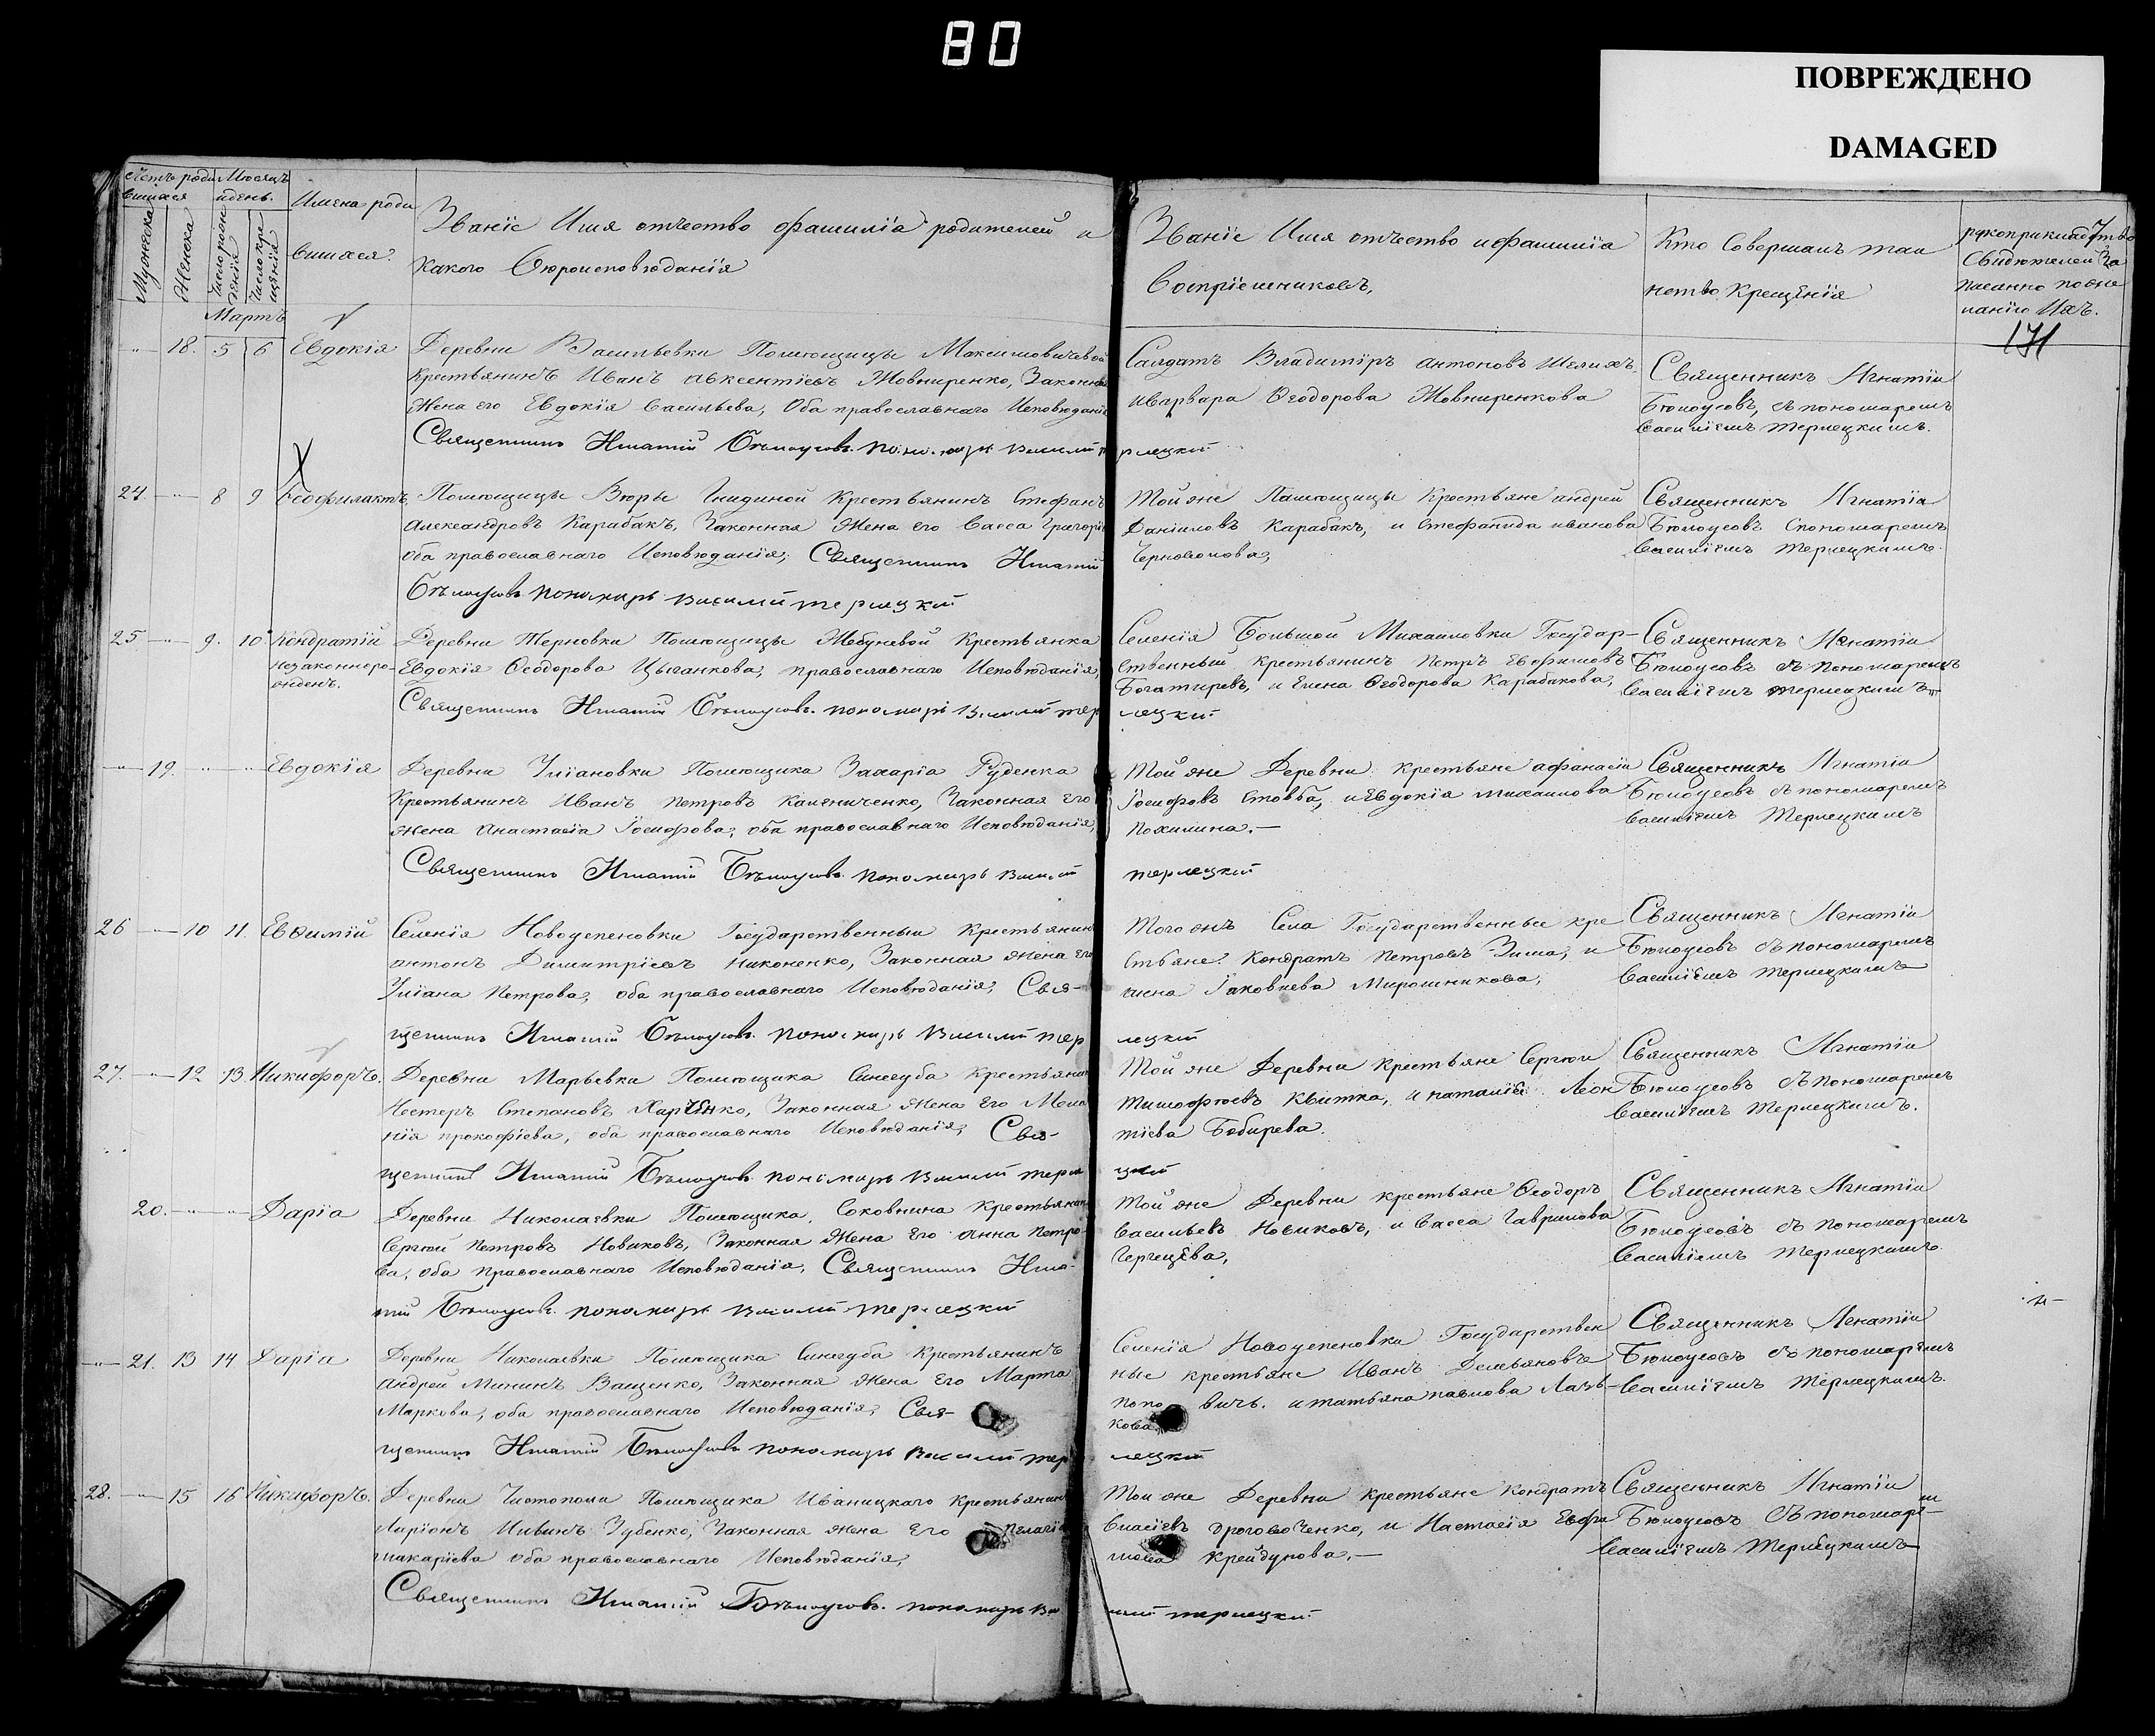 80
ПОВРЕЖДЕНО
DAMAGED
Счетъ роди Мѣсяцъ
вшихся и день.
Мужеска
Женска
Число рож
денія
Число кре
щенія
Имена роди
вшихся.
Званіе Имя отчество фамилія родителей и
какого вѣроисповѣданія
Званіе Имя отчество и фамилія
воспріемниковъ,
Кто совершалъ таи
нство крещенія
рукоприкладство
свидѣтелей за
писанно по же
ланію ихъ.
171
Мартъ
18. 5 6 Евдокія
Деревни Васильевки Помѣщицы Максимовичевой
крестьянинъ Иванъ Авксентіевъ Жовниренко, Законная
Жена его Евдокія Васильева, Оба православнаго Исповѣданія
Священникъ Игнатій Бѣлоусовъ. пономарь Василій те
рлецкій
Салдатъ Владиміръ Антоновъ
и Варвара Ѳеодорова Жовниренкова
Священникъ Игнатій
Бѣлоусовъ, съ пономаремъ
Василіемъ Терлецкимъ.
24. 8 9 Ѳеофилактъ
Помѣщицы Вѣры Гнидиной Крестьянинъ Стефанъ
Александровъ Карабакъ, Законная Жена его Васса Григорі
оба православнаго Исповѣданія; Священникъ Игнатій
Бѣлоусовъ пономарь Василій терлецкій
Той же Помѣщицы Крестьяне Андрей
Даніиловъ Карабакъ, и Стефанида Иванова
Черноволова,
Священникъ Игнатій
Бѣлоусовъ спономаремъ
Василіемъ Терлецкимъ.
25 9. 10 Кондратій
незаконноро
жденъ.
Деревни Терновки Помѣщицы Жебуневой Крестьянка
Евдокія Ѳеодорова Цыганкова, православнаго Исповѣданія,
Священникъ Игнатій Бѣлоусовъ. пономарь Василій тер
лецкій
Селенія Большой Михаиловки Государ-
ственный крестьянинъ Петръ Евфимовъ
Богатиревъ, и Елена Ѳеодорова Карабакова,
Священникъ Игнатій
Бѣлоусовъ съ пономаремъ
Василіемъ терлецкимъ
19. Евдокія
Деревни Уліановки Помѣщика Захарія Руденка
Крестьянинъ Иванъ Петровъ Каменниченко, Законная его
жена Анастасія Іосифова, оба православнаго Исповѣданія,
Священникъ Игнатій Бѣлоусовъ. пономарь Василій
терлецкій
Той же Деревни крестьяне Афанасій
Іосифовъ Стовба, и Евдокія Михаилова
Похилина.—
Священникъ Игнатій
Бѣлоусовъ съ пономаремъ
Василіемъ Терлецкимъ
26 10 11. Евѳимій
Селенія Новоуспеновки Государственный Крестьянинъ
Антонъ Димитріевъ Никоненко, Законная Жена его
Уліана Петрова, оба православнаго Исповѣданія, Свя-
щенникъ Игнатій Бѣлоусовъ. пономарь Василій тер
лецкій
Того жъ Села Государственные кре
стьяне: Кондратъ Петровъ Зима, и
Анна Іаковлева Мирошникова;
Священникъ Игнатій
Бѣлоусовъ съ пономаремъ
Василіемъ Терлецкимъ
27. 12 13 Никифоръ.
Деревни Марьевки Помѣщика Синегуба крестьянинъ
Нестеръ Степановъ Харченко, Законная Жена Его Мела
нія Прокофіева, оба православнаго Исповѣданія, Свя-
щенникъ Игнатій Бѣлоусовъ. пономарь Василій терле
цкій
Той же Деревни крестьяне Сергѣй
Тимофѣевъ Квитка, и Наталія Леон
тіева Бобирева.
Священникъ Игнатій
Бѣлоусовъ съ пономаремъ
Василіемъ Терлецкимъ.
20. Дарія
Деревни Николаевки Помѣщика Соковнина Крестьянинъ
Сергѣй Петровъ Новиковъ, Законная Жена Его Анна Петро-
ва, оба Православнаго Исповѣданія, Священникъ Игна-
тій Бѣлоусовъ. пономарь Василій терлецкій
Той же Деревни крестьяне Ѳеодоръ
Васильевъ Новиковъ, и Васса Гаврилова
Священникъ Игнатій
Бѣлоусовъ съ пономаремъ
Василіемъ Терлецкимъ.
21. 13 14 Дарія
Деревни Николаевки Помѣщика Синегуба Крестьянинъ
Андрей Мининъ Ващенко, Законная Жена Его Марта
Маркова, оба православнаго Исповѣданія, Свя-
щенникъ Игнатій Бѣлоусовъ пономарь Василій тер
лецкій
Селенія Новоуспеновка Государствен
ные крестьяне Иванъ Демьяновъ
Попо вичъ. и татьяна павлова
кова
Священникъ Игнатій
Бѣлоусовъ съ пономаремъ
Василіемъ Терлецкимъ.
28. 15 16 Никифоръ.
Деревни Чистополи Помѣщика Иваницкаго крестьянинъ
Ларіонъ Зубенко, Законная жена Его Пелагія
Макаріева оба православнаго Исповѣданія,
Священникъ Игнатій Бѣлоусовъ. пономарь Ва
силій терлецкій
Той же Деревни крестьяне Кондратъ
Власіевъ Дроговоченко, и Настасія Евфи
мова Крейдунова.—
Священникъ Игнатій
Бѣлоусовъ съ пономаре
мъ
Василіемъ Терлецкимъ